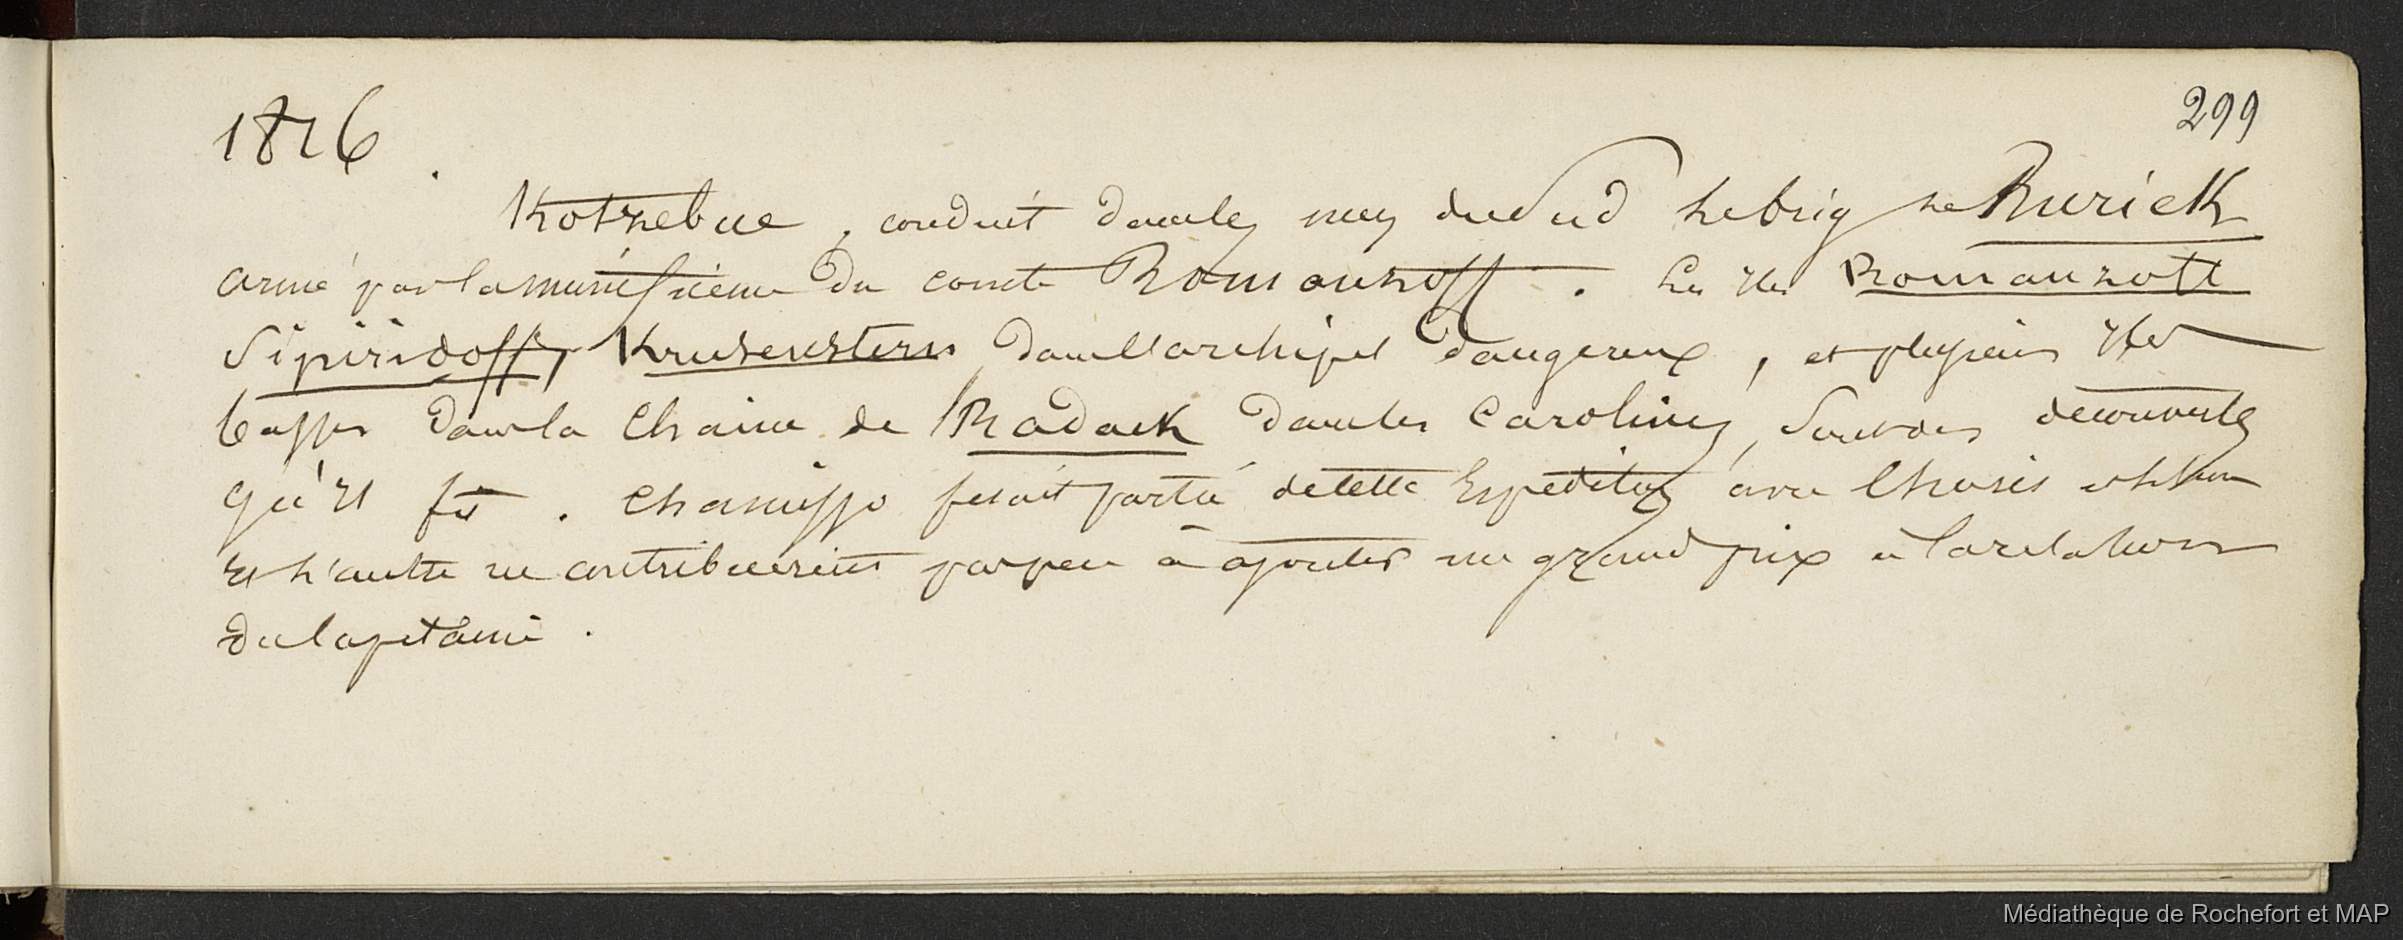 299
1816.
Kotzebue, conduit dans les mers du Sud le brig le Rurick
armé par la munificence du comte Romanzoff. les Iles Romanzoff
Sipiridoff, Krusenstern dans l'archipel dangereux, et plusieurs Iles
basses dans la chaine de Radack dans les Carolines, sont des découvertes
qu'il fit. Chamisso fesait partie de cette Expédition avec Choris et l'un
et l'autre ne contribuerent pas peu à ajouter un grand prix à la relation
du Capitaine.
Médiathèque de Rochefort et MAP